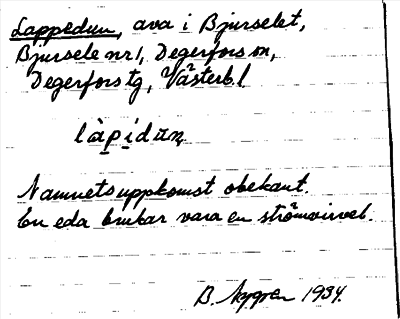 Lappedun, ava i Bjurselet,
Bjursele nr 1, Degerfors sn,
Degerfors tg, Västerb. l
làpidun
Namnets uppkomst obekant.
En eda brukar vara en strömvirvel.
B. 1934.